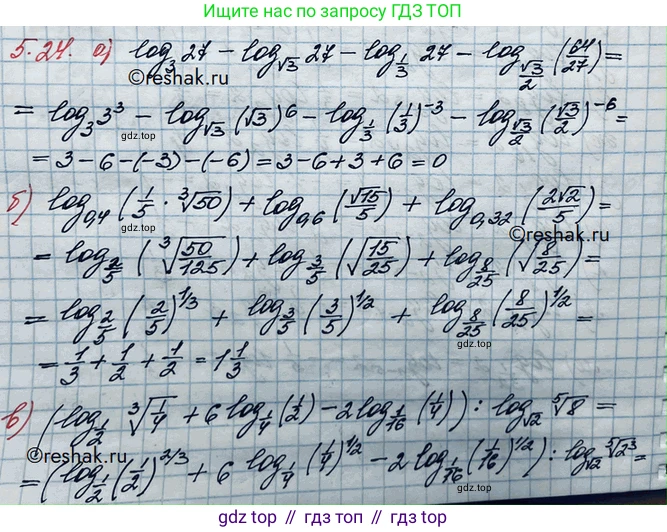 Ищите нас по запросу ГДЗ ТОП
5.24. а) log₃ 27 − log_√3 27 − log_{1/3} 27 − log_{√3/2} (64/27) =
©reshak.ru
= log₃ 3³ − log_√3 (√3)⁶ − log_{1/3} (1/3)⁻³ − log_{√3/2} (√3/2)⁻⁶ =
gdz.top gdz.top
= 3 − 6 − (−3) − (−6) = 3 − 6 + 3 + 6 = 0
б) log_{0,4} (1/5 · ∛50) + log_{0,6} (√15/5) + log_{0,32} (2√2/5) =
gdz.top
©reshak.ru
= log_{2/5} (∛(50/125)) + log_{3/5} (√(15/25)) + log_{8/25} (√(8/25)) =
= log_{2/5} (2/5)^{1/3} + log_{3/5} (3/5)^{1/2} + log_{8/25} (8/25)^{1/2} =
gdz.top gdz.top
= 1/3 + 1/2 + 1/2 = 1 1/3
в) (log_{1/2} ∛(1/4) + 6 log_{1/4} (1/2) − 2 log_{1/16} (1/4)) : log_√2 ⁵√8 =
©reshak.ru
gdz.top
= (log_{1/2} (1/2)^{2/3} + 6 log_{1/4} (1/4)^{1/2} − 2 log_{1/16} (1/16)^{1/2}) : log_√2 ⁵√2³ =
gdz.top // гдз.топ // gdz.top // гдз.топ // gdz.top